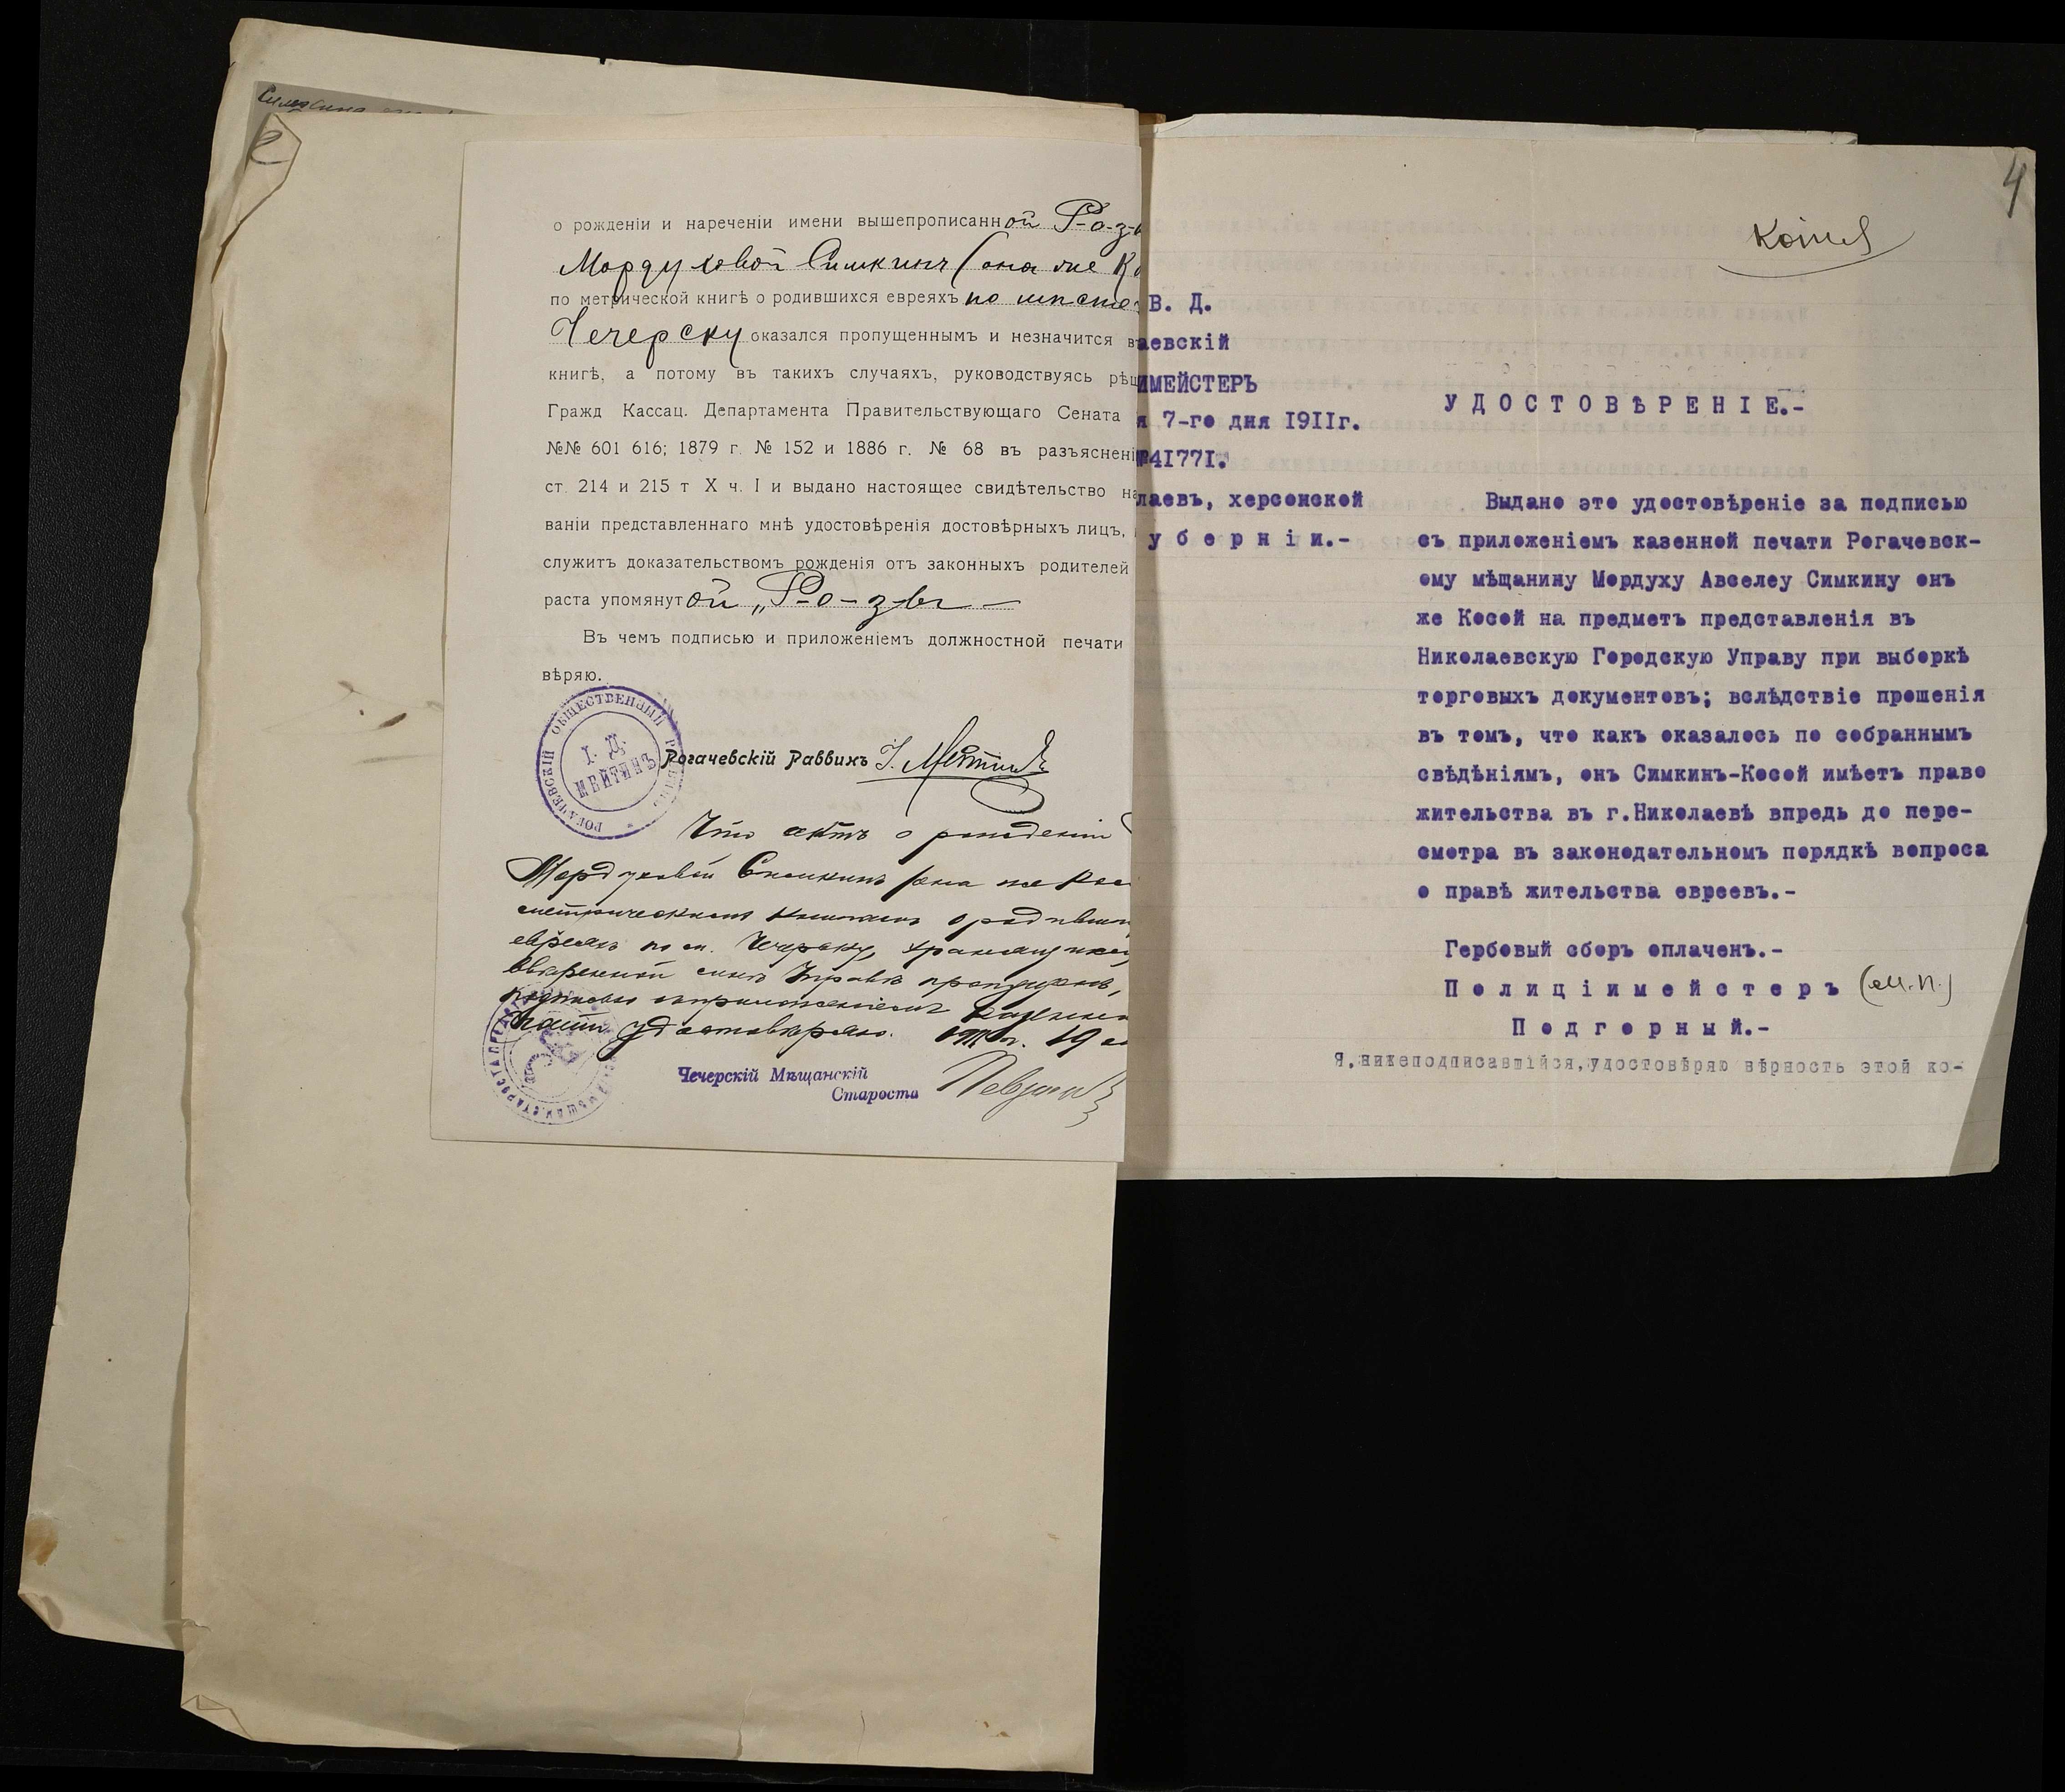 2
о рожденіи и нареченіи имени вышепрописанной Р-о-з-ы
Мордуховой Симкинъ (она же Ко
по метрической книгѣ о родившихся евреяхъ по мѣсте
Чечерску оказался пропущеннымъ и незначится въ
книгѣ, а потому въ такихъ случаяхъ, руководствуясь рѣш
Гражд Кассац. Департамента Правительствующаго Сената
№№ 601 616; 1879 г. № 152 и 1886 г. № 68 въ разъясненi
ст. 214 и 215 т X ч. I и выдано настоящее свидѣтельство на
ваніи представленнаго мнѣ удостовѣренія достовѣрныхъ лицъ,
служитъ доказательствомъ рожденія отъ законныхъ родителей
раста упомянутой „Р-о-з-ы —
Въ чемъ подписью и приложеніемъ должностной печати
вѣряю.
РОГАЧЕВСКІЙ ОБЩЕСТВЕННЫЙ РАВВИНЪ
І. Д.
МЕЙТИНЪ
Рогачевскій Раввинъ І. Мейтинъ
Что актъ о рожденіи
Мордуховой Симкинъ (она же Кос
метрическимъ книгамъ о родивши
евреяхъ по м. Чечерску, хранящимся
ввѣренной мнѣ Управѣ пропущенъ,
подписью и приложеніемъ казенной
печати удостовѣряю. 19
Чечерскій Мѣщанскій
Староста Певзнеръ
4
Копія
В. Д.
аевскій
ИМЕЙСТЕРЪ
я 7-го дня 1911г.
№41771.
лаевъ, херсонской
у б е р н і и.-
У Д О С Т О В Ѣ Р Е Н І Е.-
Выдано это удостовѣреніе за подписью
съ приложеніемъ казенной печати Рогачевск-
ому мѣщанину Мордуху Авселеу Симкину онъ
же Косой на предметъ представленія въ
Николаевскую Городскую Управу при выборкѣ
торговыхъ документовъ; вслѣдствіе прошенія
въ томъ, что какъ оказалось по собраннымъ
свѣдѣніямъ, онъ Симкинъ-Косой имѣетъ право
жительства въ г.Николаевѣ впредь до пере-
смотра въ законодательномъ порядкѣ вопроса
о правѣ жительства евреевъ.-
Гербовый сборъ оплаченъ.-
П о л и ц і и м е й с т е р ъ (М.П.)
П о д г о р н ы й.-
Я,нижеподписавшійся,удостовѣряю вѣрность этой ко-